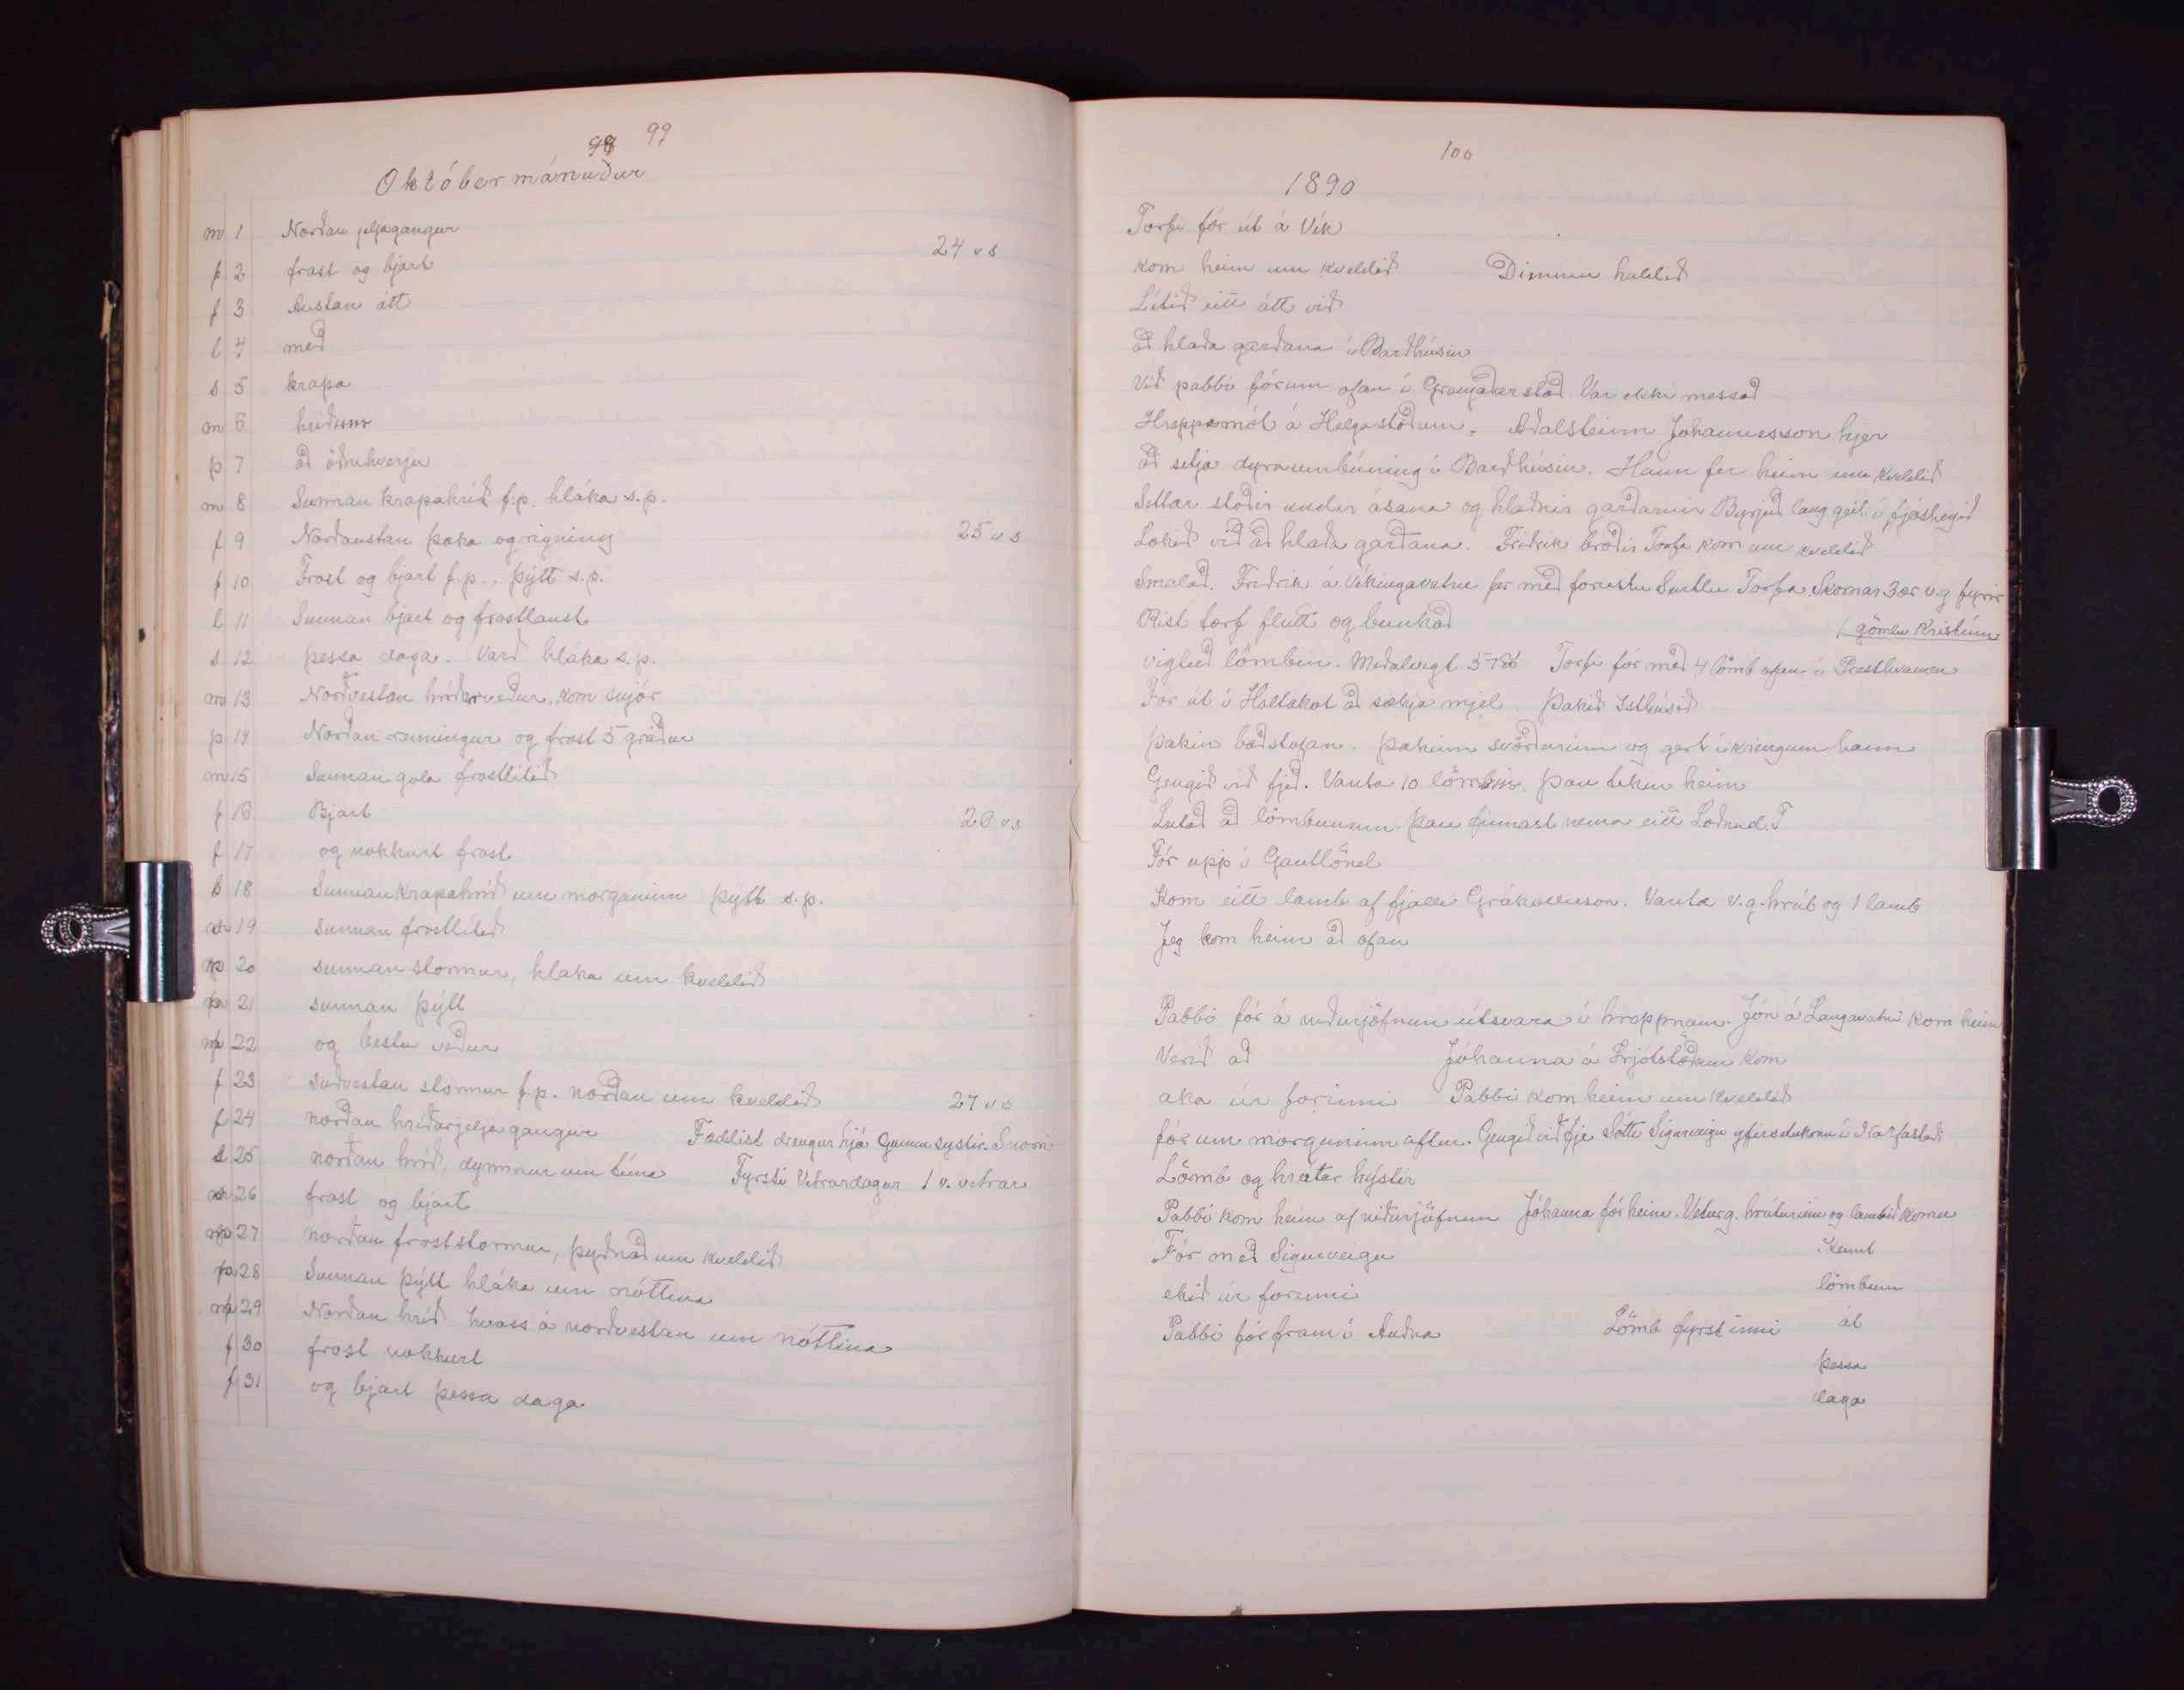 98 99
Október mánuður
m 1 Norðan jeljagangur
24 v s
þ 2 frost og bjart
f 3 Austan átt
l 4 með
s 5 krapa
m 6 hríðum
þ 7 að öðruhverju
m 8 Sunnan krapahríð f.p. hláka s.p.
f 9 Norðaustan þoka og rigning 25 v s
f 10 Frost og bjart f.p. þýtt s.p.
l 11 Sunnan bjart og frostlaust
s 12 þessa daga. Varð hláka s.p.
m 13 Norðvestan hríðarveður, kom snjór
þ 14 Norðan renningur og frost 5 gráður
m 15 Sunnan gola frostlítið
f 16 Bjart 26 v s
f 17 og nokkurt frost
l 18 Sunnan krapahríð um morguninn þýtt s.p.
s 19 sunnan frostlítið
m 20 sunnan stormur, hláka um kveldið
þ 21 sunnan þýtt
m 22 og besta veður
f 23 suðvestan stormur f.p. norðan um kveldið 27 v s
f 24 norðan hríðarjeljagangur Fæddist drengur hjá Gunnu systir. Snorri
l 25 norðan hríð, dymmur um tíma Fyrsti Vetrardagur 1 v. vetrar
s 26 frost og bjart
m 27 norðan froststormur, þyðnað um kveldið
þ 28 Sunnan þýtt hláka um nóttina
m 29 Norðan hríð hvass á norðvestan um nóttina
f 30 frost nokkurt
f 31 og bjart þessa daga
100
1890
Torfi fór út á Vík
kom heim um kveldið Dimmu haldið
Lítið eitt átt við
að hlaða garðana í Barðhúsin
Við pabbi fórum ofan í Grenjaðarstað. Var ekki messað
Hreppamót á Helgastöðum. Aðalsteinn Jóhannesson hjer
að setja dyraumbúning í Barðhúsin. Hann fer heim um kveldið
Settar stoðir undir ásana og hlaðnir garðarnir Byrjað lang geil í fjósheyið
Lokið við að hlaða garðana. Friðrik bróðir Torfa kom um kveldið
Smalað. Friðrik á Víkingavatne fer með forustu Surtlu Torfa. Skornar 3 ær v.g fyrir
Rist torf flutt og bunkað
gömlu Kristínu
vigtuð lömbin. Meðalvigt Torfi fór með 4 lömb ofan í Presthvamm
Fór út í Hallakot að sækja mjel. Þakið Ísthúsið
Þakin baðstofan. Þakinn svörðurinn og gert í kringum hann
Gengið við fjeð. Vanta 10 lömbin. Þau tekin heim
Leitað að lömbunum. Þau finnast nema eitt Loðnud. T
Fór upp í Gautlönd
Kom eitt lamb af fjalli Grákolluson. Vanta v.g. hrút og 1 lamb
Jeg kom heim að ofan
Pabbi fór á niðurjöfnun útsvara í hreppnum. Jón á Langavatni kom heim
Verið að Jóhanna á Ljótsstöðum kom
aka úr forinni Pabbi kom heim um kveldið
fór um morguninn aftur. Gengið við fje Sótti Sigurveigu yfirsetukonu í Narfastaði
Lömb og hrútar hýstir
Pabbi kom heim af niðurjöfnun Jóhanna fór heim. Veturg. hrúturinn og lambið komu
Fór með Sigurveigu Kent
ekið úr forinni lömbum
Pabbi fór fram í Auðna Lömb fyrst inni át
þessa
daga